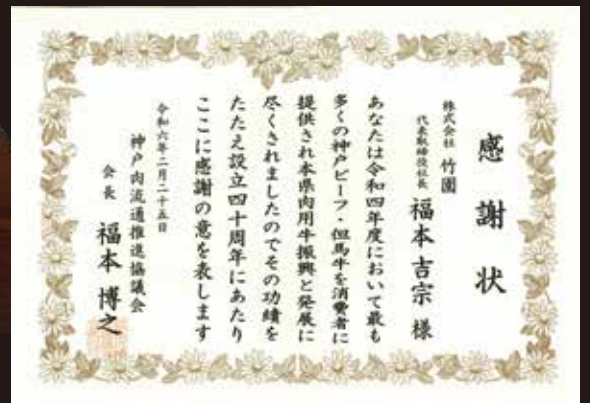 感謝状
株式会社 竹園
代表取締役社長 福本吉宗 様
あなたは令和四年度において最も
多くの神戸ビーフ・但馬牛を消費者に
提供され本県肉用牛振興と発展に
尽くされましたのでその功績を
たたえ設立四十周年にあたり
ここに感謝の意を表します
令和六年二月二十五日
神戸肉流通推進協議会
会長 福本博之